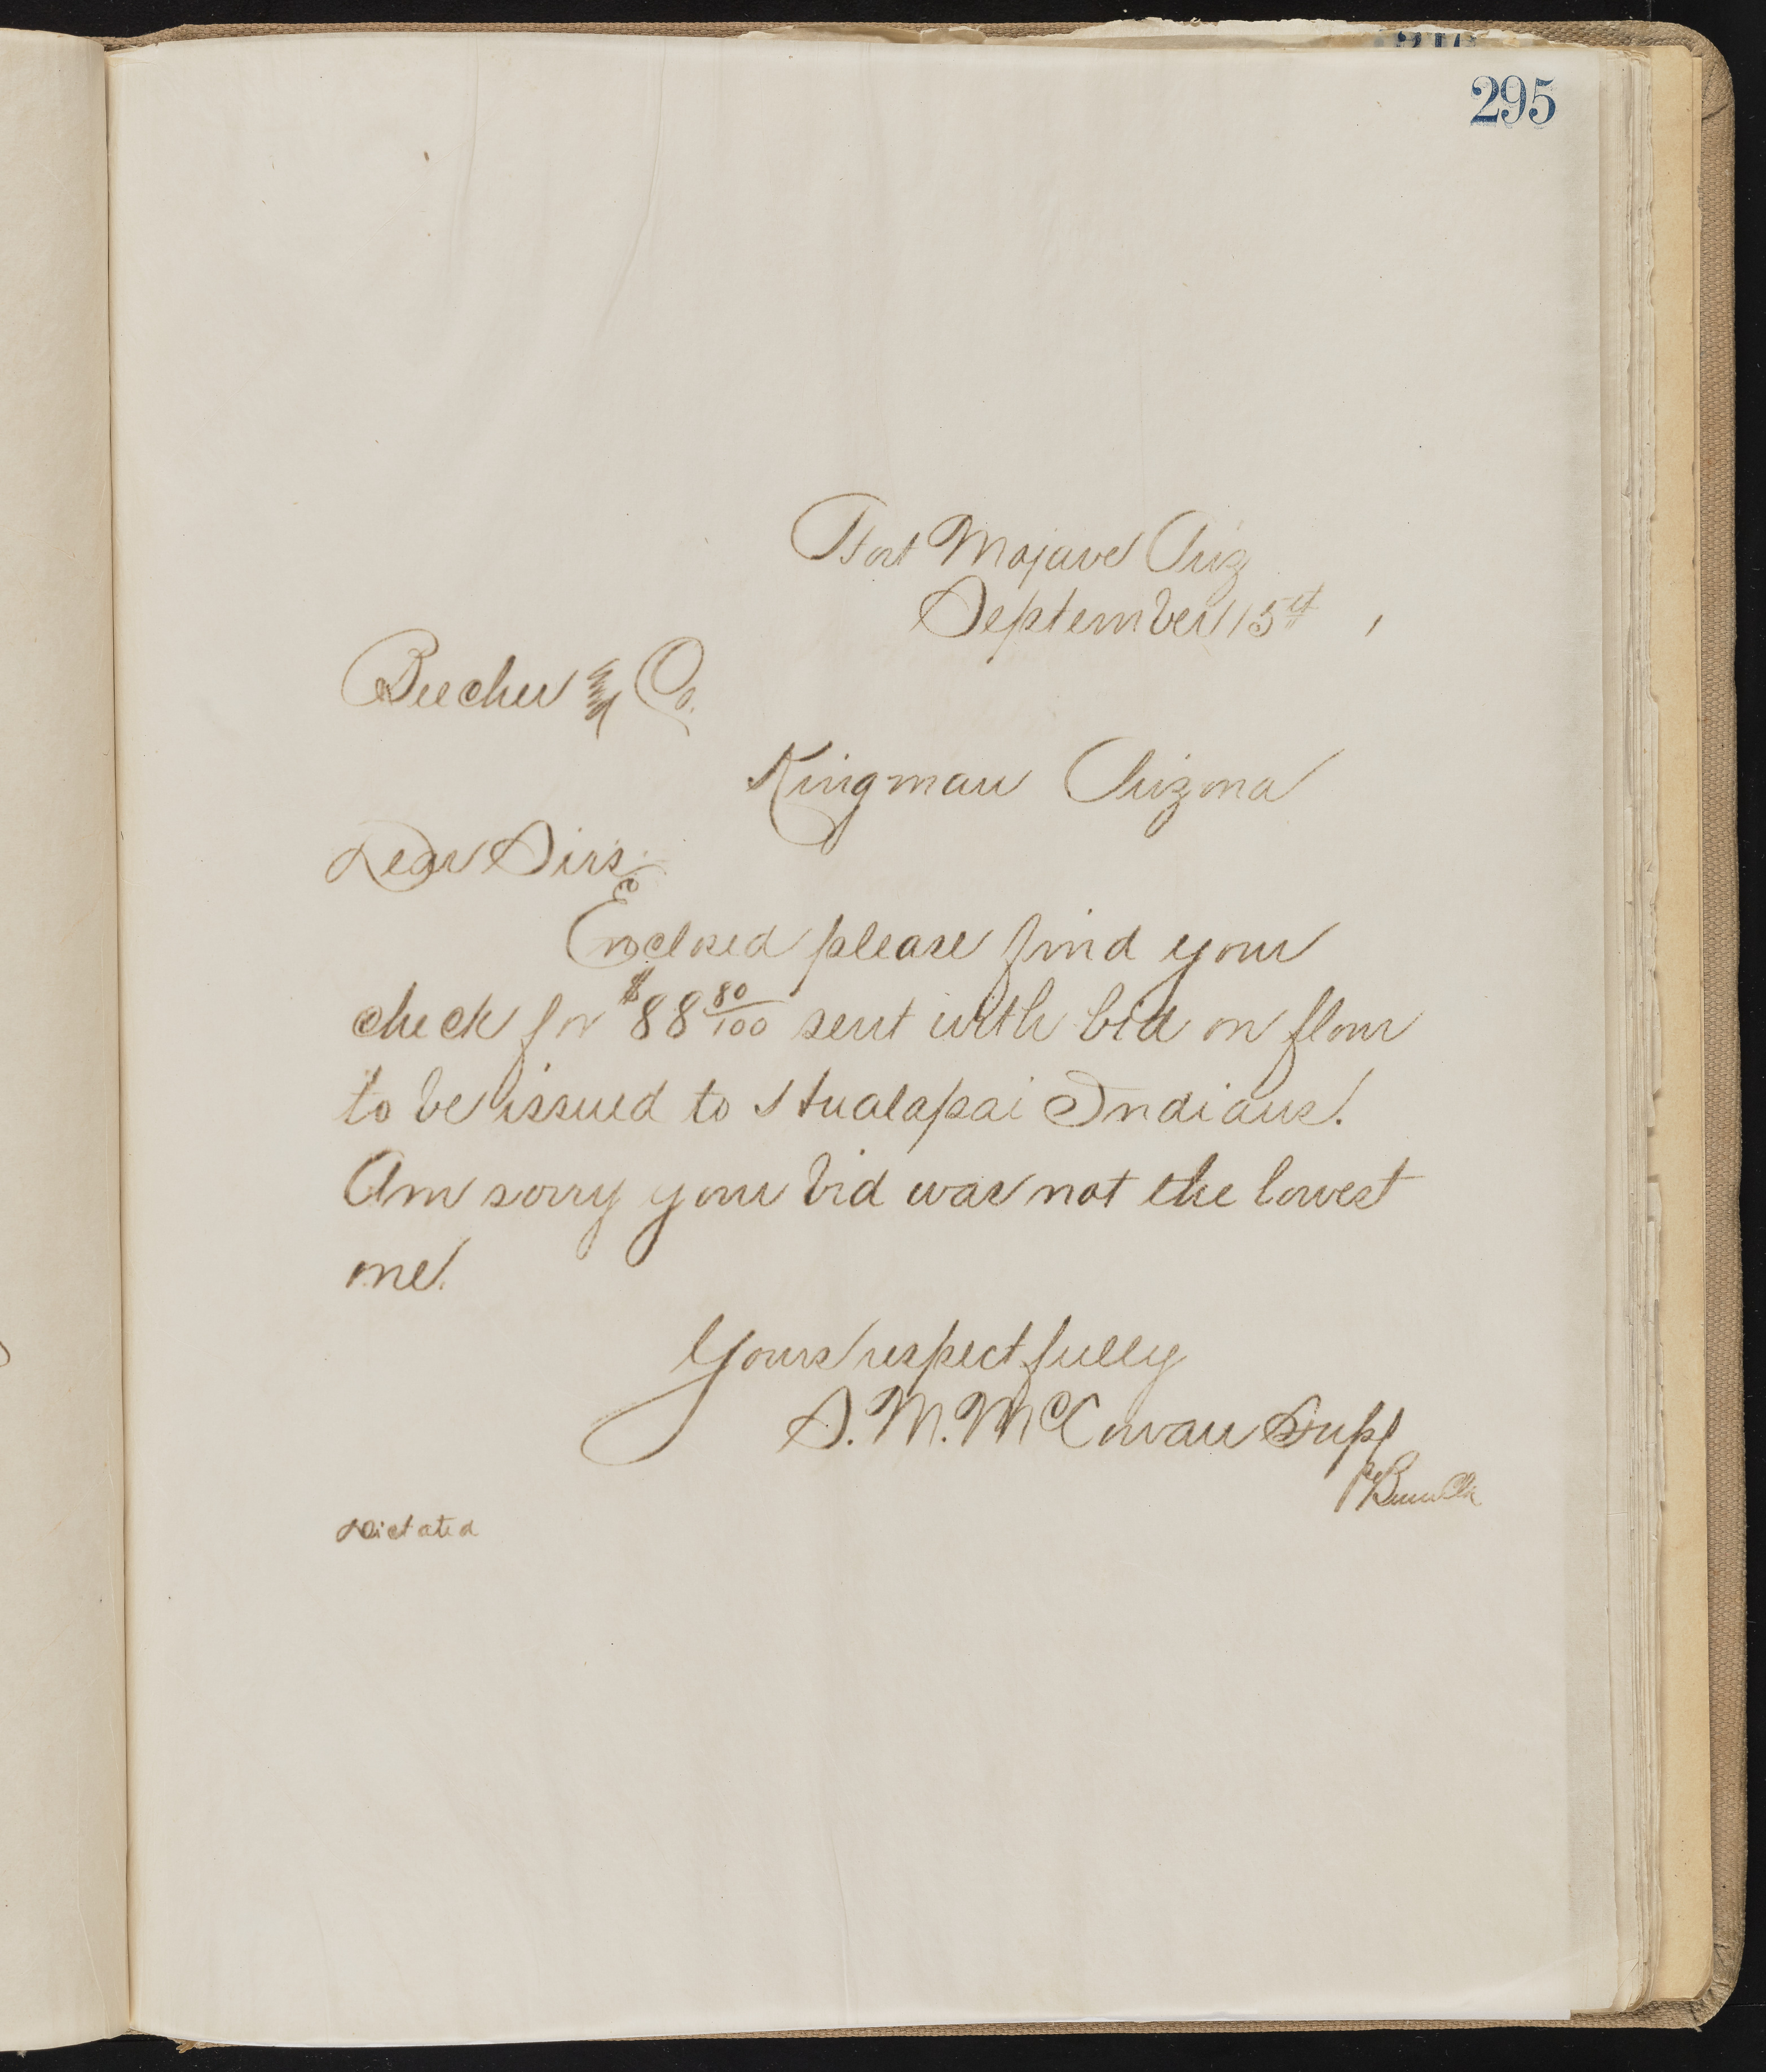 295
Fort Mojave Ariz
September 15th,
Beecher & Co.
Kingman Arizona
Dear Sirs:
Enclosed please find your
check for $88 80/100 sent with bid on flour
to be issued to Hualapai Indians.
Am sorry your bid was not the lowest
one.
Yours respectfully
S. M. McCowan Supt
Dictated